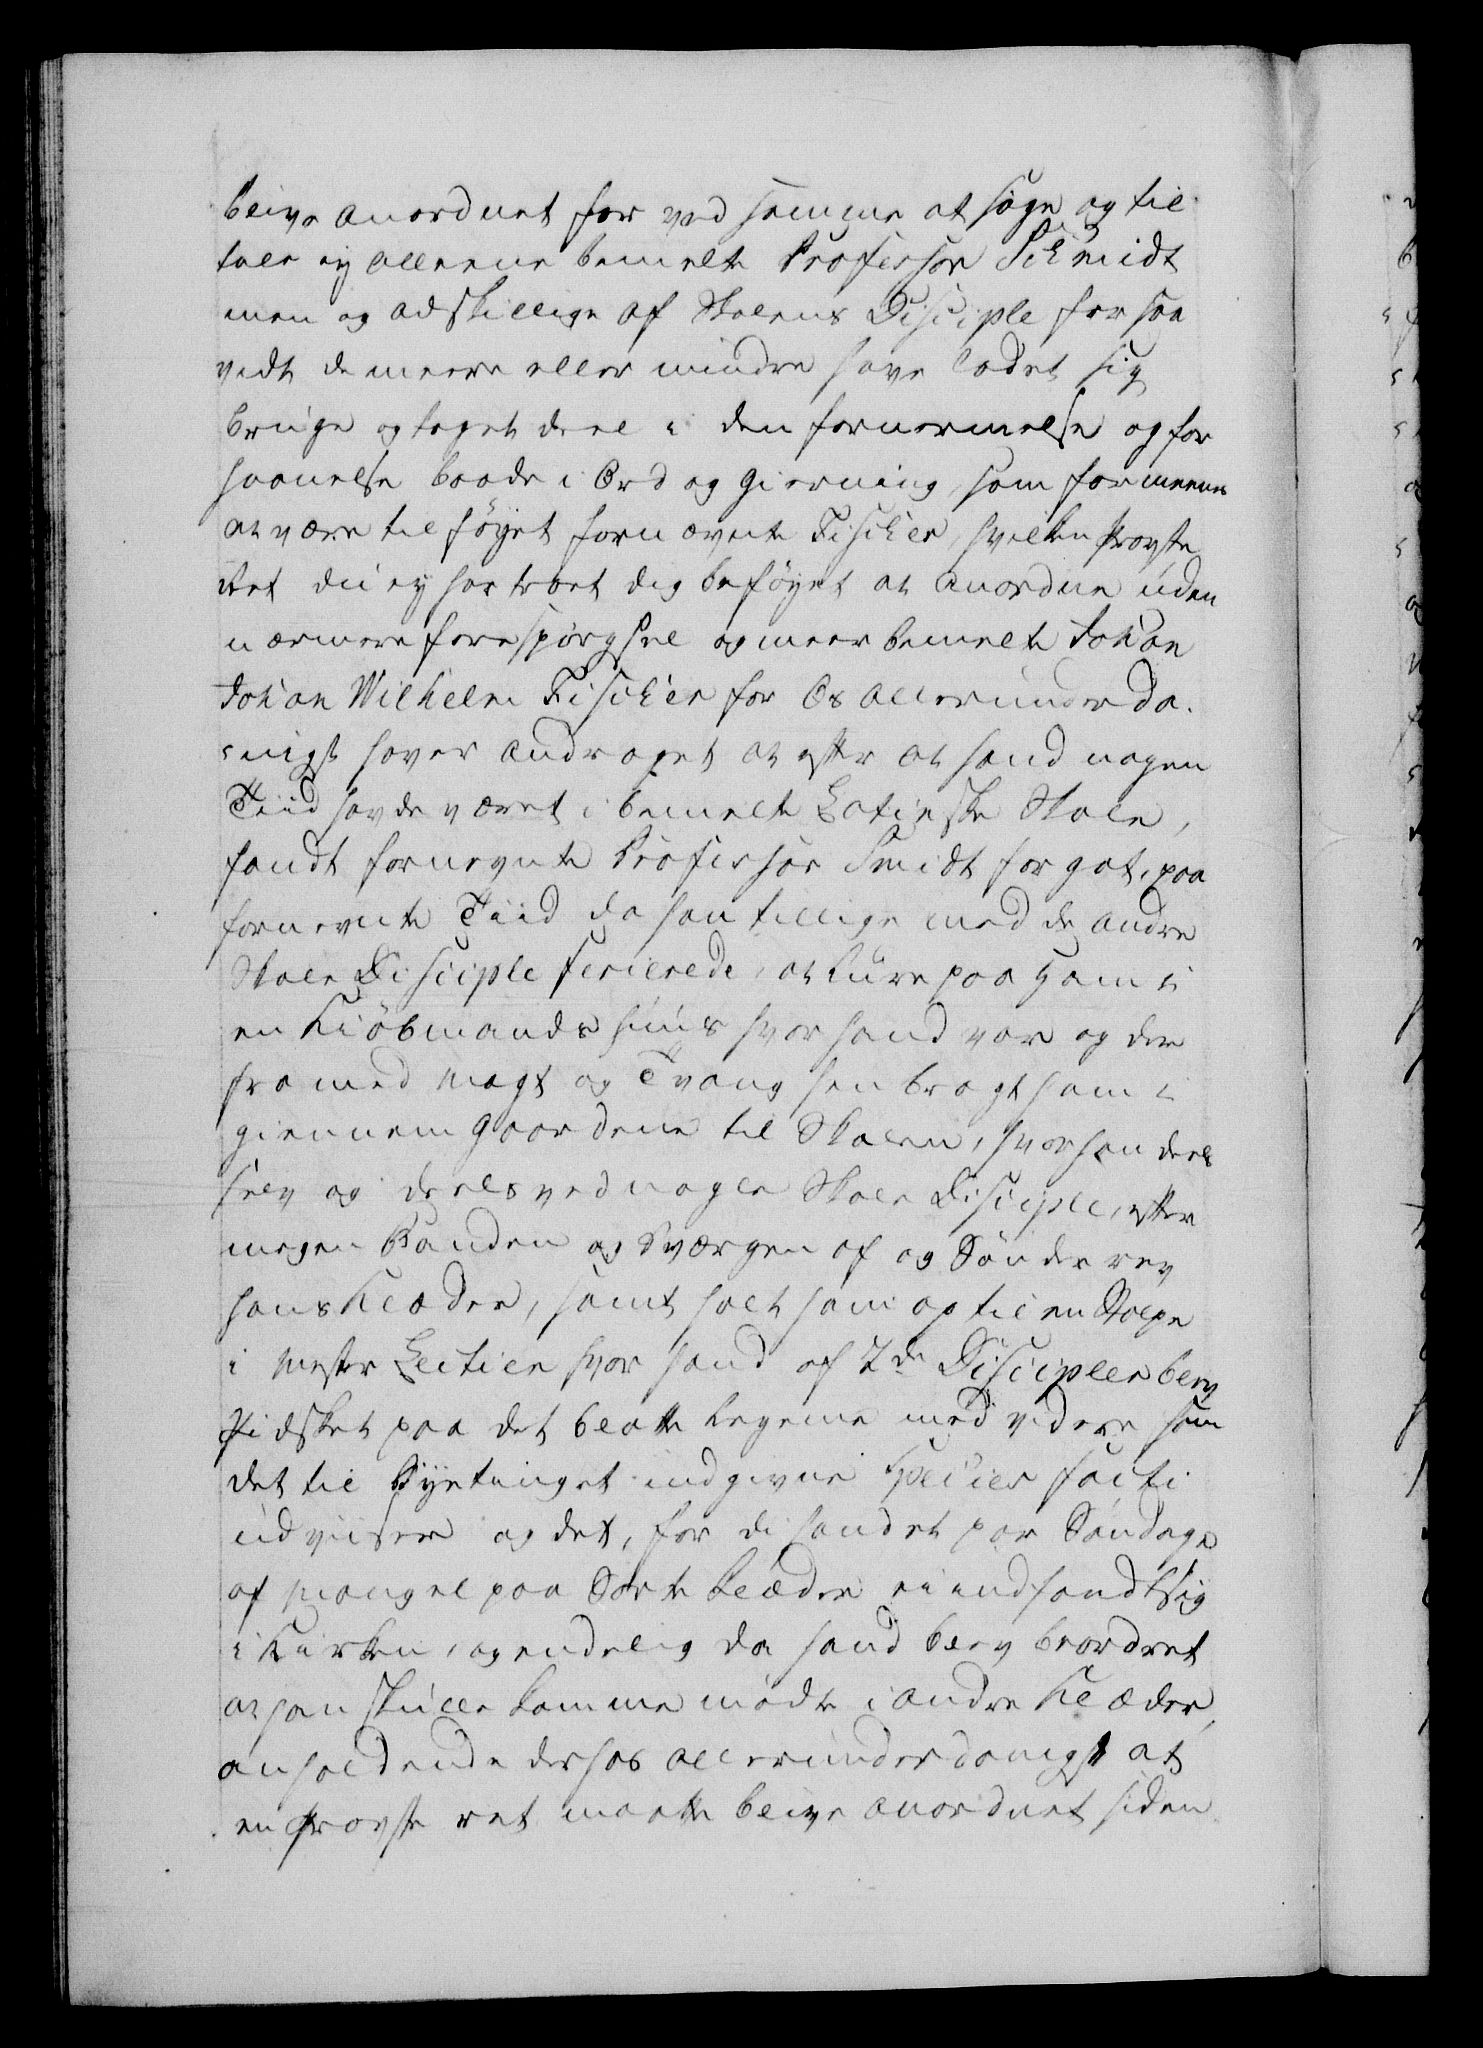 blive anordnet for ved samme at søge og til-
tale ey alleene bemelte Professor Schmidt
men og adskillige af Skolens Disciple for saa
vidt de meere eller mindre have ladet sig
bruge og taget deel i den fornermelse og for
haanelse baade i Ord og Gierning, som formeenes
at være tilføyet fornævnte Fischer, hvilken Provste
Ret du ey har troet dig beføyet at anordne uden
nærmere forespørgsel og meerbemelte Johan
Johan Wilhelm Fischer for Os allerunderda-
nigst haver andraget at efter at hand nogen
Tiid havde været i bemelte Latinske Skole,
fandt fornevnte Professor Smidt for got, paa
fornevnte Tiid da han tillige med de andre
Skole Disciple ferierede, at lure paa ham i
en Kiöbmands huus hvor hand var og der
fra med Magt og Tvang hen bragt ham i
giennem Gaardene til Skolen, hvor han deels
selv og deels ved nogle Skole Disciple, efter
megen Banden og Sværgen af og Sönderrev
hans Klæder, samt holt ham op til en Stolpe
i Mester Lectien hvor hand af 2de Disciple blev
Pidsket paa det blotte Legeme med videre som
det til Byetinget indgivne Species facti
udviiser og det, fordi hand et par Søndage
af Mangel paa Sorte Klæder ei indfandt sig
i Kirken, og endelig da hand blev beordret
at han skulle komme møde i andre Klæder,
anholdende derhos allerunderdanigst at
en Provste ret maatte blive anordnet siden